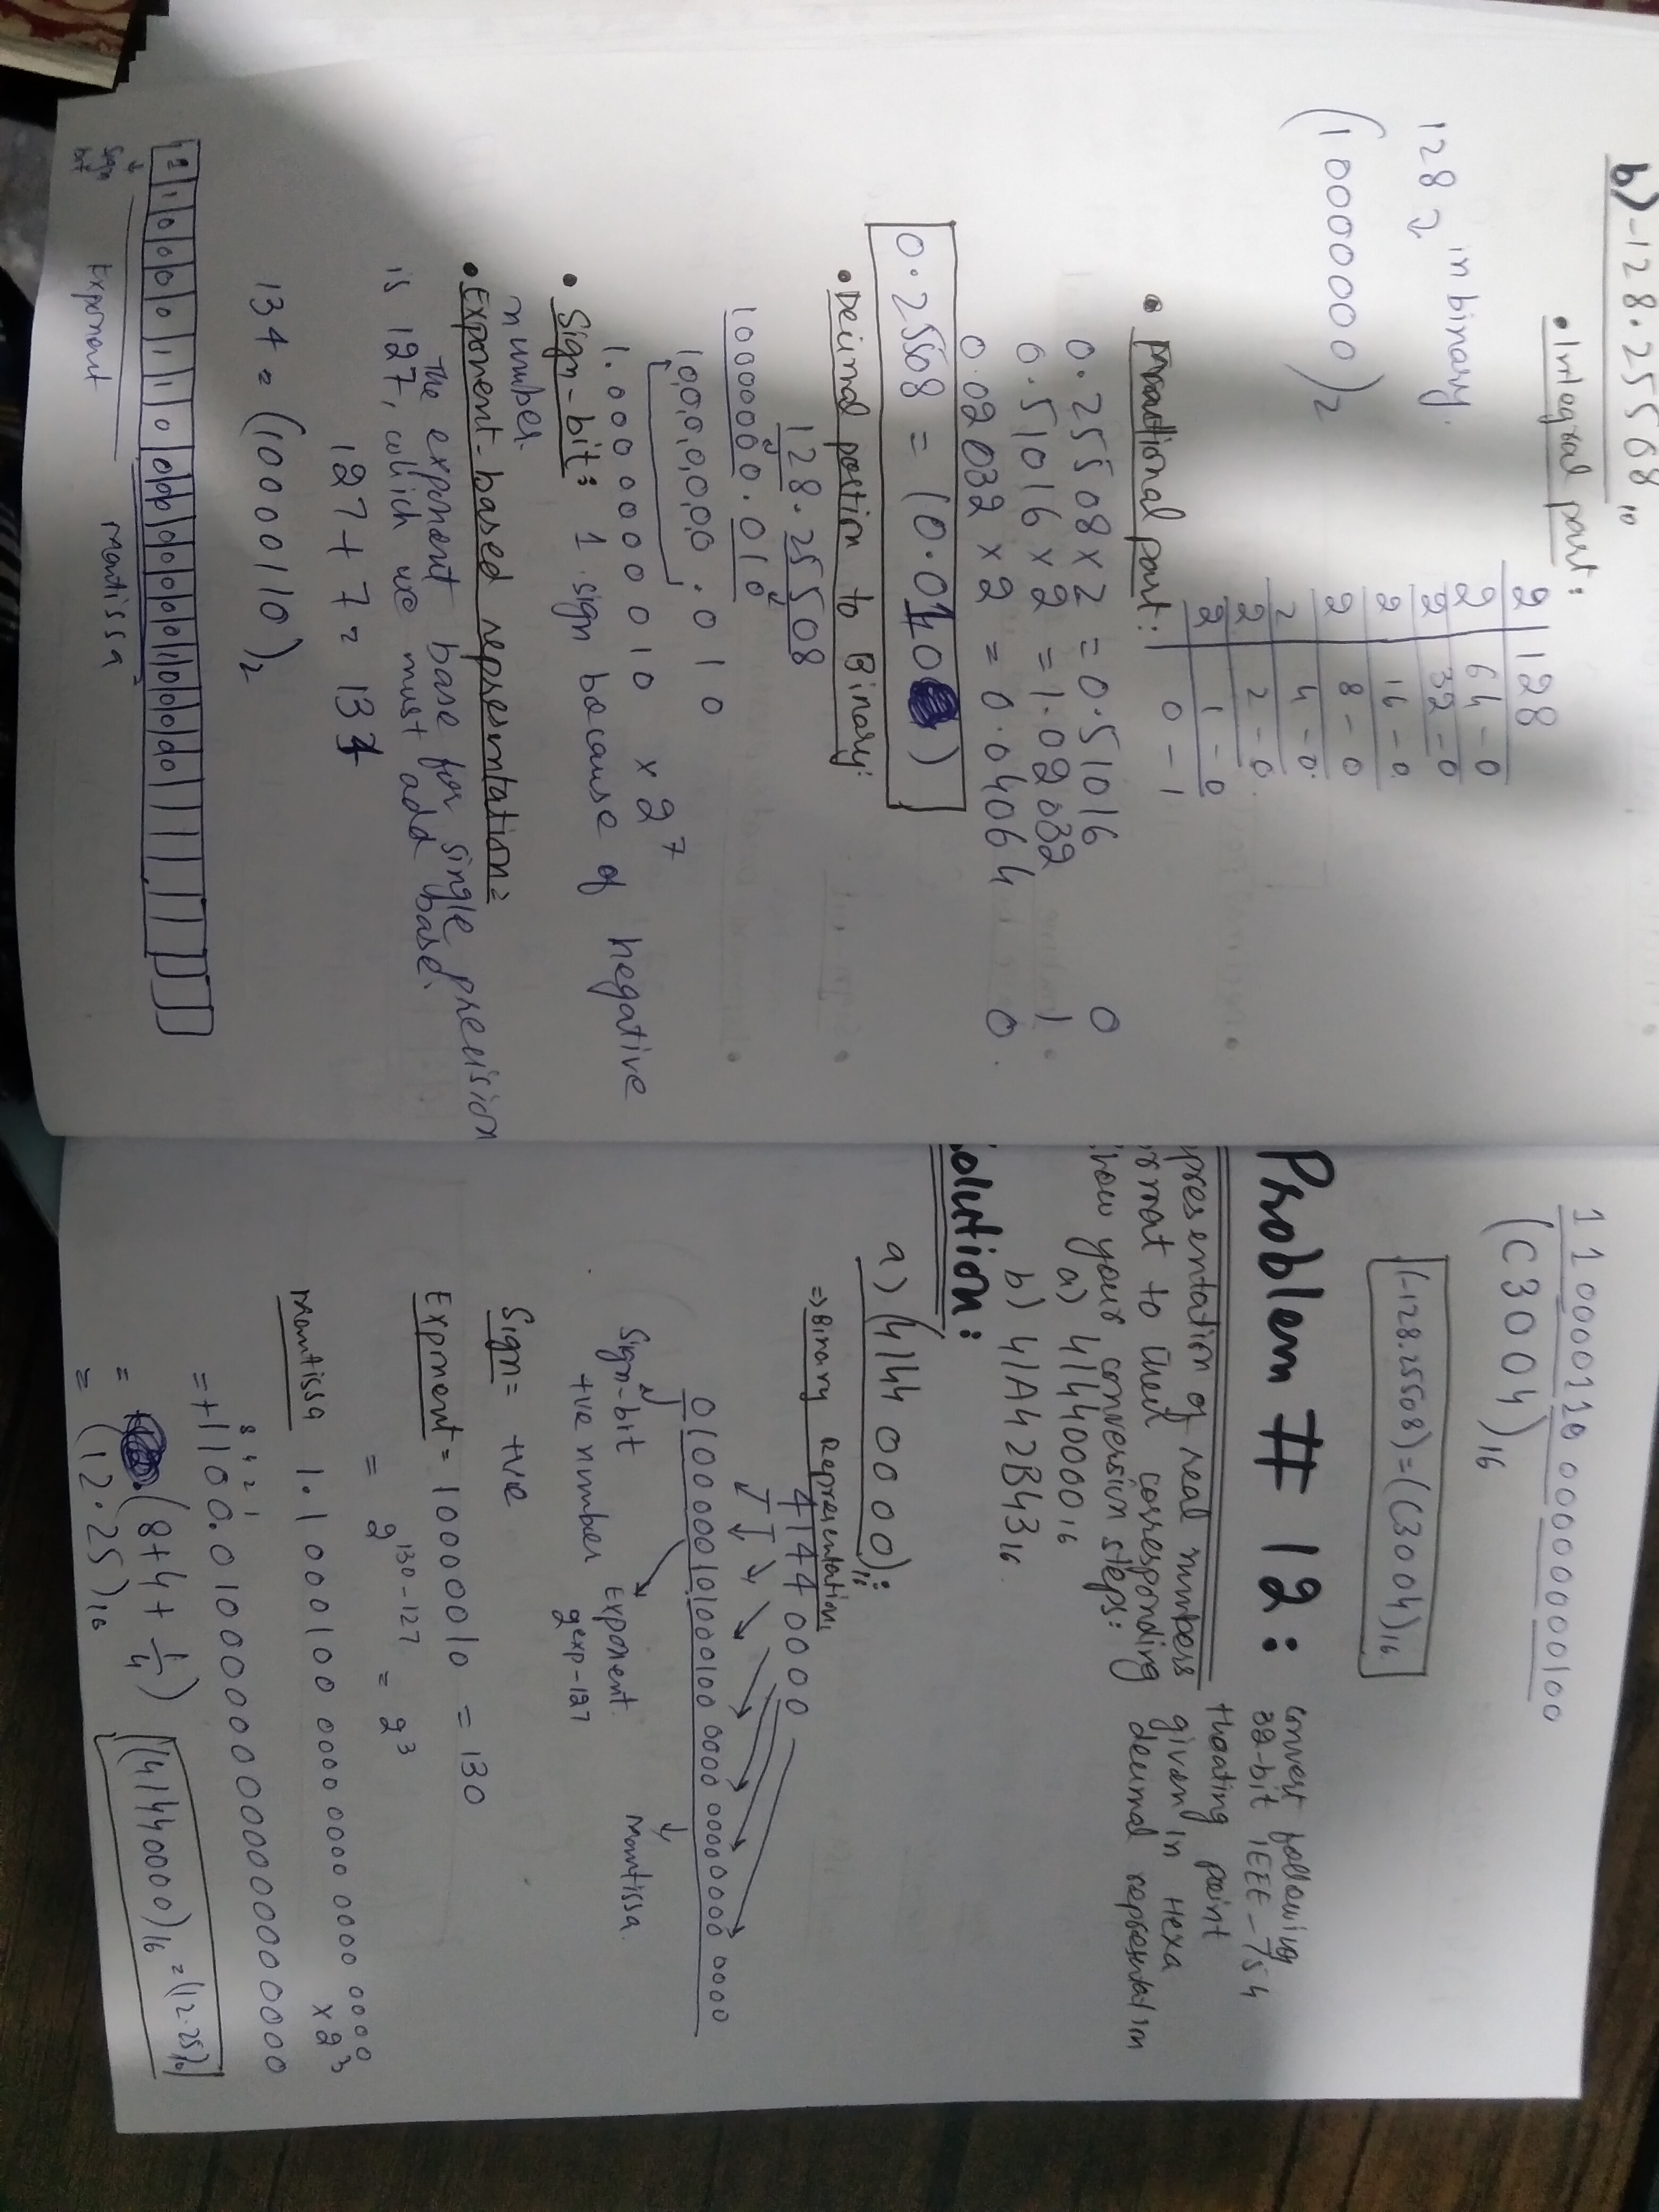 b) -128.25508₁₀
• Integral part:
128 in binary.
(10000000)₂
2 | 128
2 | 64 - 0
2 | 32 - 0
2 | 16 - 0
2 | 8 - 0
2 | 4 - 0
2 | 2 - 0
2 | 1 - 0
0 - 1
• Fractional part:
0.25508 x 2 = 0.51016 0
0.51016 x 2 = 1.02032 1
0.02032 x 2 = 0.04064 0.
0.25508 = (0.010)
• Decimal portion to Binary:
128.25508
10000000.010
10000000.010
1.0000000010 x 2⁷
• Sign-bit: 1 sign because of negative
number.
• Exponent-based representation:
The exponent base for single precision
is 127, which we must add base.
127 + 7 = 134
134 = (10000110)₂
1 1 0 0 0 0 1 1 0 0 0 0 0 0 0 0 0 1 0 0 0 0 0
Sign bit
Exponent
Mantissa
1100001100000000000000100
(C3004)₁₆
(-128.25508) = (C3004)₁₆
Problem # 12:
convert following
32-bit IEEE-754
floating point
given in Hexa
decimal representation
presentation of real numbers
rmat to their corresponding
how your conversion steps:
a) 41440000₁₆
b) 41A42B43₁₆.
olution:
a) (41440000):
=> Binary Representation:
4144 0000
01000001010001000000000000000000
Sign-bit
+ve number
Exponent
2^exp-127
Mantissa.
Sign = +ve
Exponent = 10000010 = 130
= 2^130-127 = 2³
Mantissa 1.1000100 0000 0000 0000 0000
x 2³
8 4 2 1
= +1100.01000000000000000000
= (8+4+1/4)
= (12.25)₁₆
(41440000)₁₆ = (12.25)₁₀